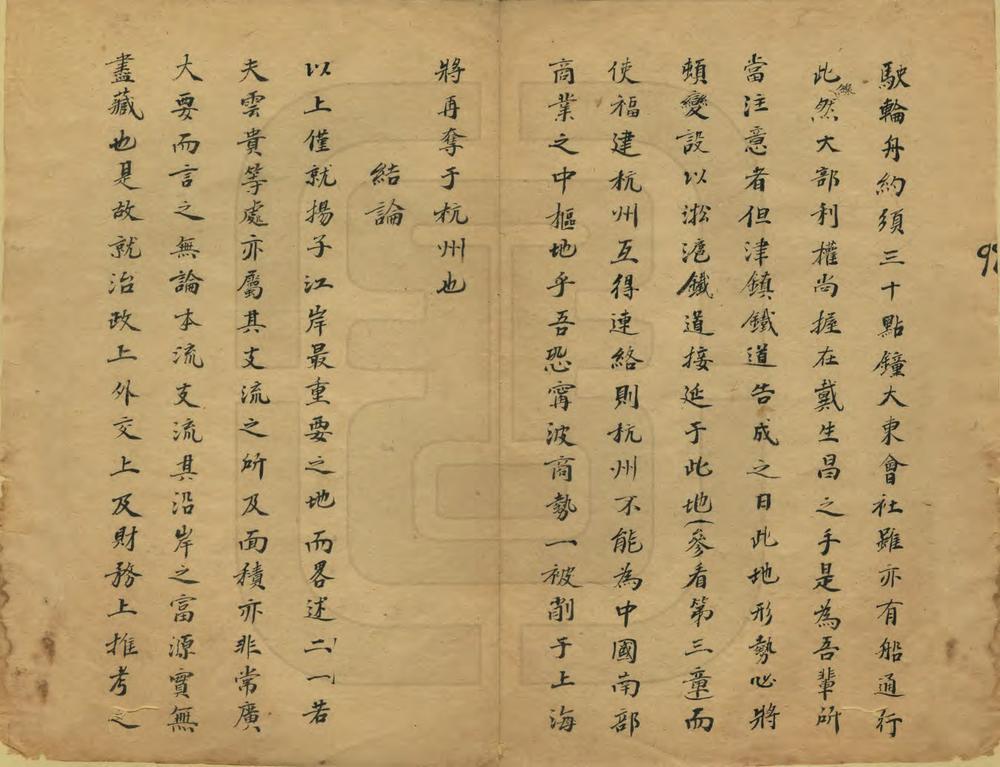 駛輪舟約須三十點鐘大東會社雖亦有船通行
此線然大部利權尚握在戴生昌之手是為吾輩所
當注意者但津鎮鐵道告成之日此地形勢必將
頓變設以淞滬鐵道接延于此地(參看第三章)而
使福建杭州互得連絡則杭州不能為中國南部
商業之中樞地乎吾恐寗波商勢一被削于上海
將再奪于杭州也
結論
以上僅就揚子江岸最重要之地而畧述一二若
夫雲貴等處亦屬其支流之所及面積亦非常廣
大要而言之無論本流支流其沿岸之富源實無
盡藏也是故就治政上外交上及財務上推考之